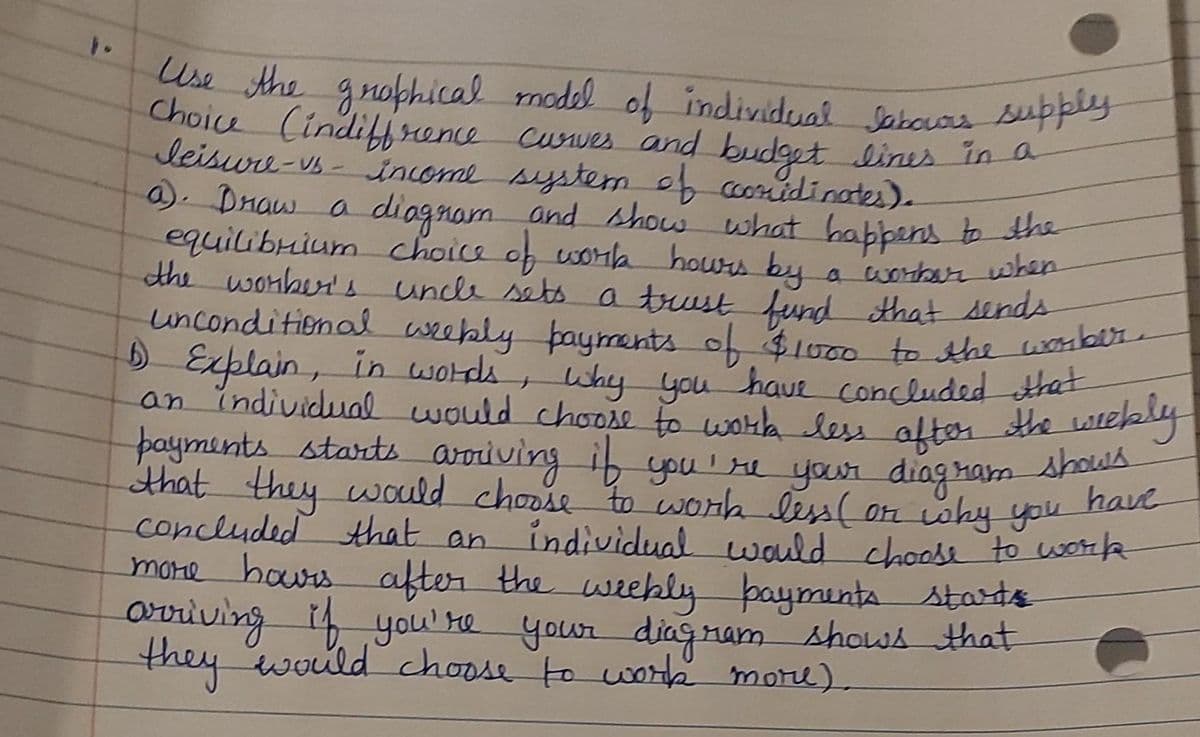 1.
Use the graphical model of individual labours supply
choice (indiffrence curves and budget lines in a
leisure-vs- income system of cooridinates).
a). Draw a diagram and show what happens to the
equilibrium choice of work hours by a worker when
the worker's uncle sets a trust fund that sends
unconditional weekly payments of $1000 to the worker.
b) Explain, in words, why you have concluded that
an individual would choose to work less after the weekly
payments starts arriving if you're your diagram shows
that they would choose to work less( or why you have
concluded that an individual would choose to work
more hours after the weekly payments starts
arriving if you're your diagram shows that
they would choose to work more).